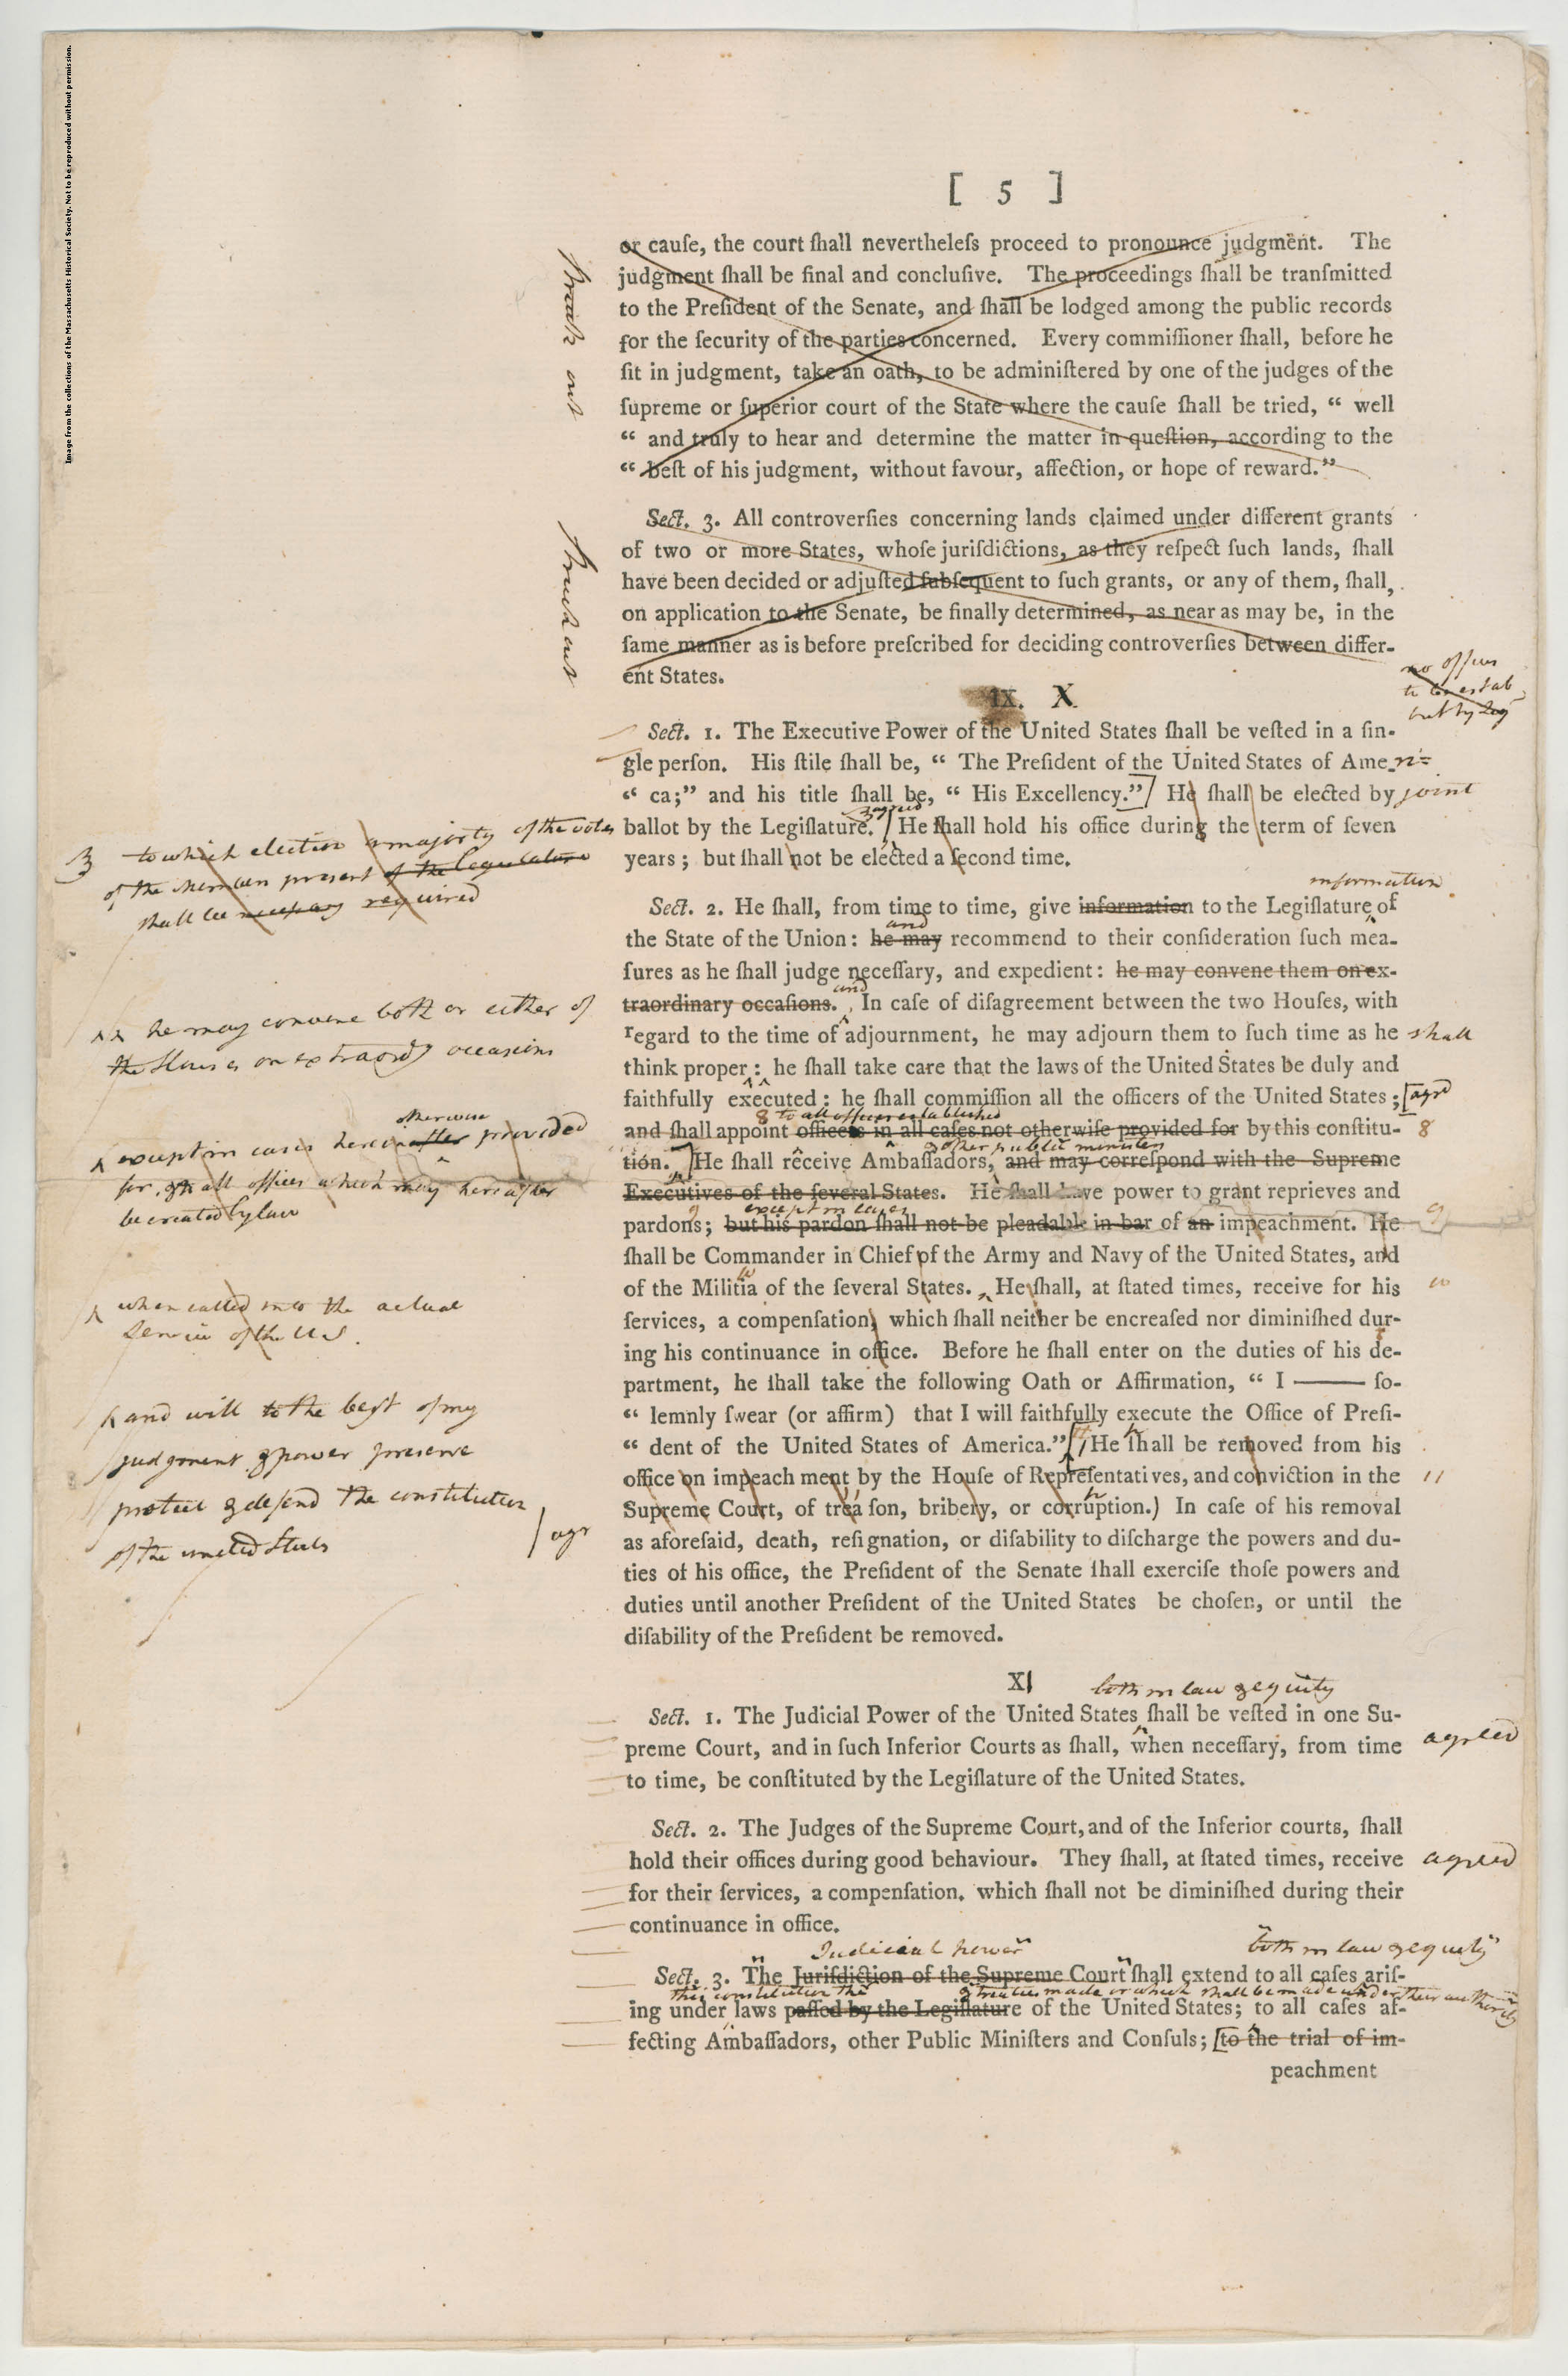 Image from the collections of the Massachusetts Historical Society. Not to be reproduced without permission.
[ 5 ]
or cauſe, the court ſhall nevertheleſs proceed to pronounce judgment. The
judgment ſhall be final and concluſive. The proceedings ſhall be tranſmitted
to the Preſident of the Senate, and ſhall be lodged among the public records
for the ſecurity of the parties concerned. Every commiſſioner ſhall, before he
ſit in judgment, take an oath, to be adminiſtered by one of the judges of the
ſupreme or ſuperior court of the State where the cauſe ſhall be tried, “ well
“ and truly to hear and determine the matter in queſtion, according to the
“ beſt of his judgment, without favour, affection, or hope of reward.”
struck out
Sect. 3. All controverſies concerning lands claimed under different grants
of two or more States, whoſe juriſdictions, as they reſpect ſuch lands, ſhall
have been decided or adjuſted ſubſequent to ſuch grants, or any of them, ſhall,
on application to the Senate, be finally determined, as near as may be, in the
ſame manner as is before preſcribed for deciding controverſies between differ-
ent States.
struck out
no offices
to be estab
but by Leg
IX. X
Sect. 1. The Executive Power of the United States ſhall be veſted in a ſin-
gle perſon. His ſtile ſhall be, “ The Preſident of the United States of Ameri=
“ ca;” and his title ſhall be, “ His Excellency.” He ſhall be elected by joint
3 agreed
ballot by the Legiſlature. He ſhall hold his office during the term of ſeven
years ; but ſhall not be elected a ſecond time.
3 to which election a majority of the votes
of the members present of the legislature
shall be necessary required
information
Sect. 2. He ſhall, from time to time, give information to the Legiſlature of
and
the State of the Union: he may recommend to their conſideration ſuch mea-
ſures as he ſhall judge neceſſary, and expedient: he may convene them on ex-
and
traordinary occaſions. In caſe of diſagreement between the two Houſes, with
regard to the time of adjournment, he may adjourn them to ſuch time as he shall
think proper : he ſhall take care that the laws of the United States be duly and
faithfully executed: he ſhall commiſſion all the officers of the United States ; [agrd
8 to all offices established
and ſhall appoint officers in all caſes not otherwiſe provided for by this conſtitu- 8
& other public ministers
tion.] He ſhall receive Ambaſſadors, and may correſpond with the Supreme
Executives of the ſeveral States. He ſhall have power to grant reprieves and
except in cases
pardons; but his pardon ſhall not be pleadable in bar of an impeachment. He 9
ſhall be Commander in Chief of the Army and Navy of the United States, and
of the Militia of the ſeveral States. He ſhall, at ſtated times, receive for his 10
ſervices, a compenſation, which ſhall neither be encreaſed nor diminiſhed dur-
ing his continuance in office. Before he ſhall enter on the duties of his de-
partment, he ſhall take the following Oath or Affirmation, “ I —— ſo-
“ lemnly ſwear (or affirm) that I will faithfully execute the Office of Preſi-
“ dent of the United States of America.” He ſhall be removed from his
office on impeachment by the Houſe of Repreſentatives, and conviction in the 11
Supreme Court, of treaſon, bribery, or corruption.) In caſe of his removal
as aforeſaid, death, reſignation, or diſability to diſcharge the powers and du-
ties of his office, the Preſident of the Senate ſhall exerciſe thoſe powers and
duties until another Preſident of the United States be choſen, or until the
diſability of the Preſident be removed.
he may convene both or either of
the Houses on extraordy occasions
otherwise
except in cases herein after provided
for, & to all offices which may hereafter
be created by law
when called into the actual
Service of the U S.
and will to the best of my
judgment & power preserve
protect & defend the constitution
of the united States
agr
XI
both in law & equity
Sect. 1. The Judicial Power of the United States ſhall be veſted in one Su-
preme Court, and in ſuch Inferior Courts as ſhall, when neceſſary, from time agreed
to time, be conſtituted by the Legiſlature of the United States.
Sect. 2. The Judges of the Supreme Court, and of the Inferior courts, ſhall
hold their offices during good behaviour. They ſhall, at ſtated times, receive agreed
for their ſervices, a compenſation, which ſhall not be diminiſhed during their
continuance in office.
Judicial power both in law & equity
Sect. 3. The Juriſdiction of the Supreme Court ſhall extend to all caſes ariſ-
this constitution the & treaties made or which shall be made under their authority
ing under laws paſſed by the Legiſlature of the United States; to all caſes af-
fecting Ambaſſadors, other Public Miniſters and Conſuls; [to the trial of im-
peachment